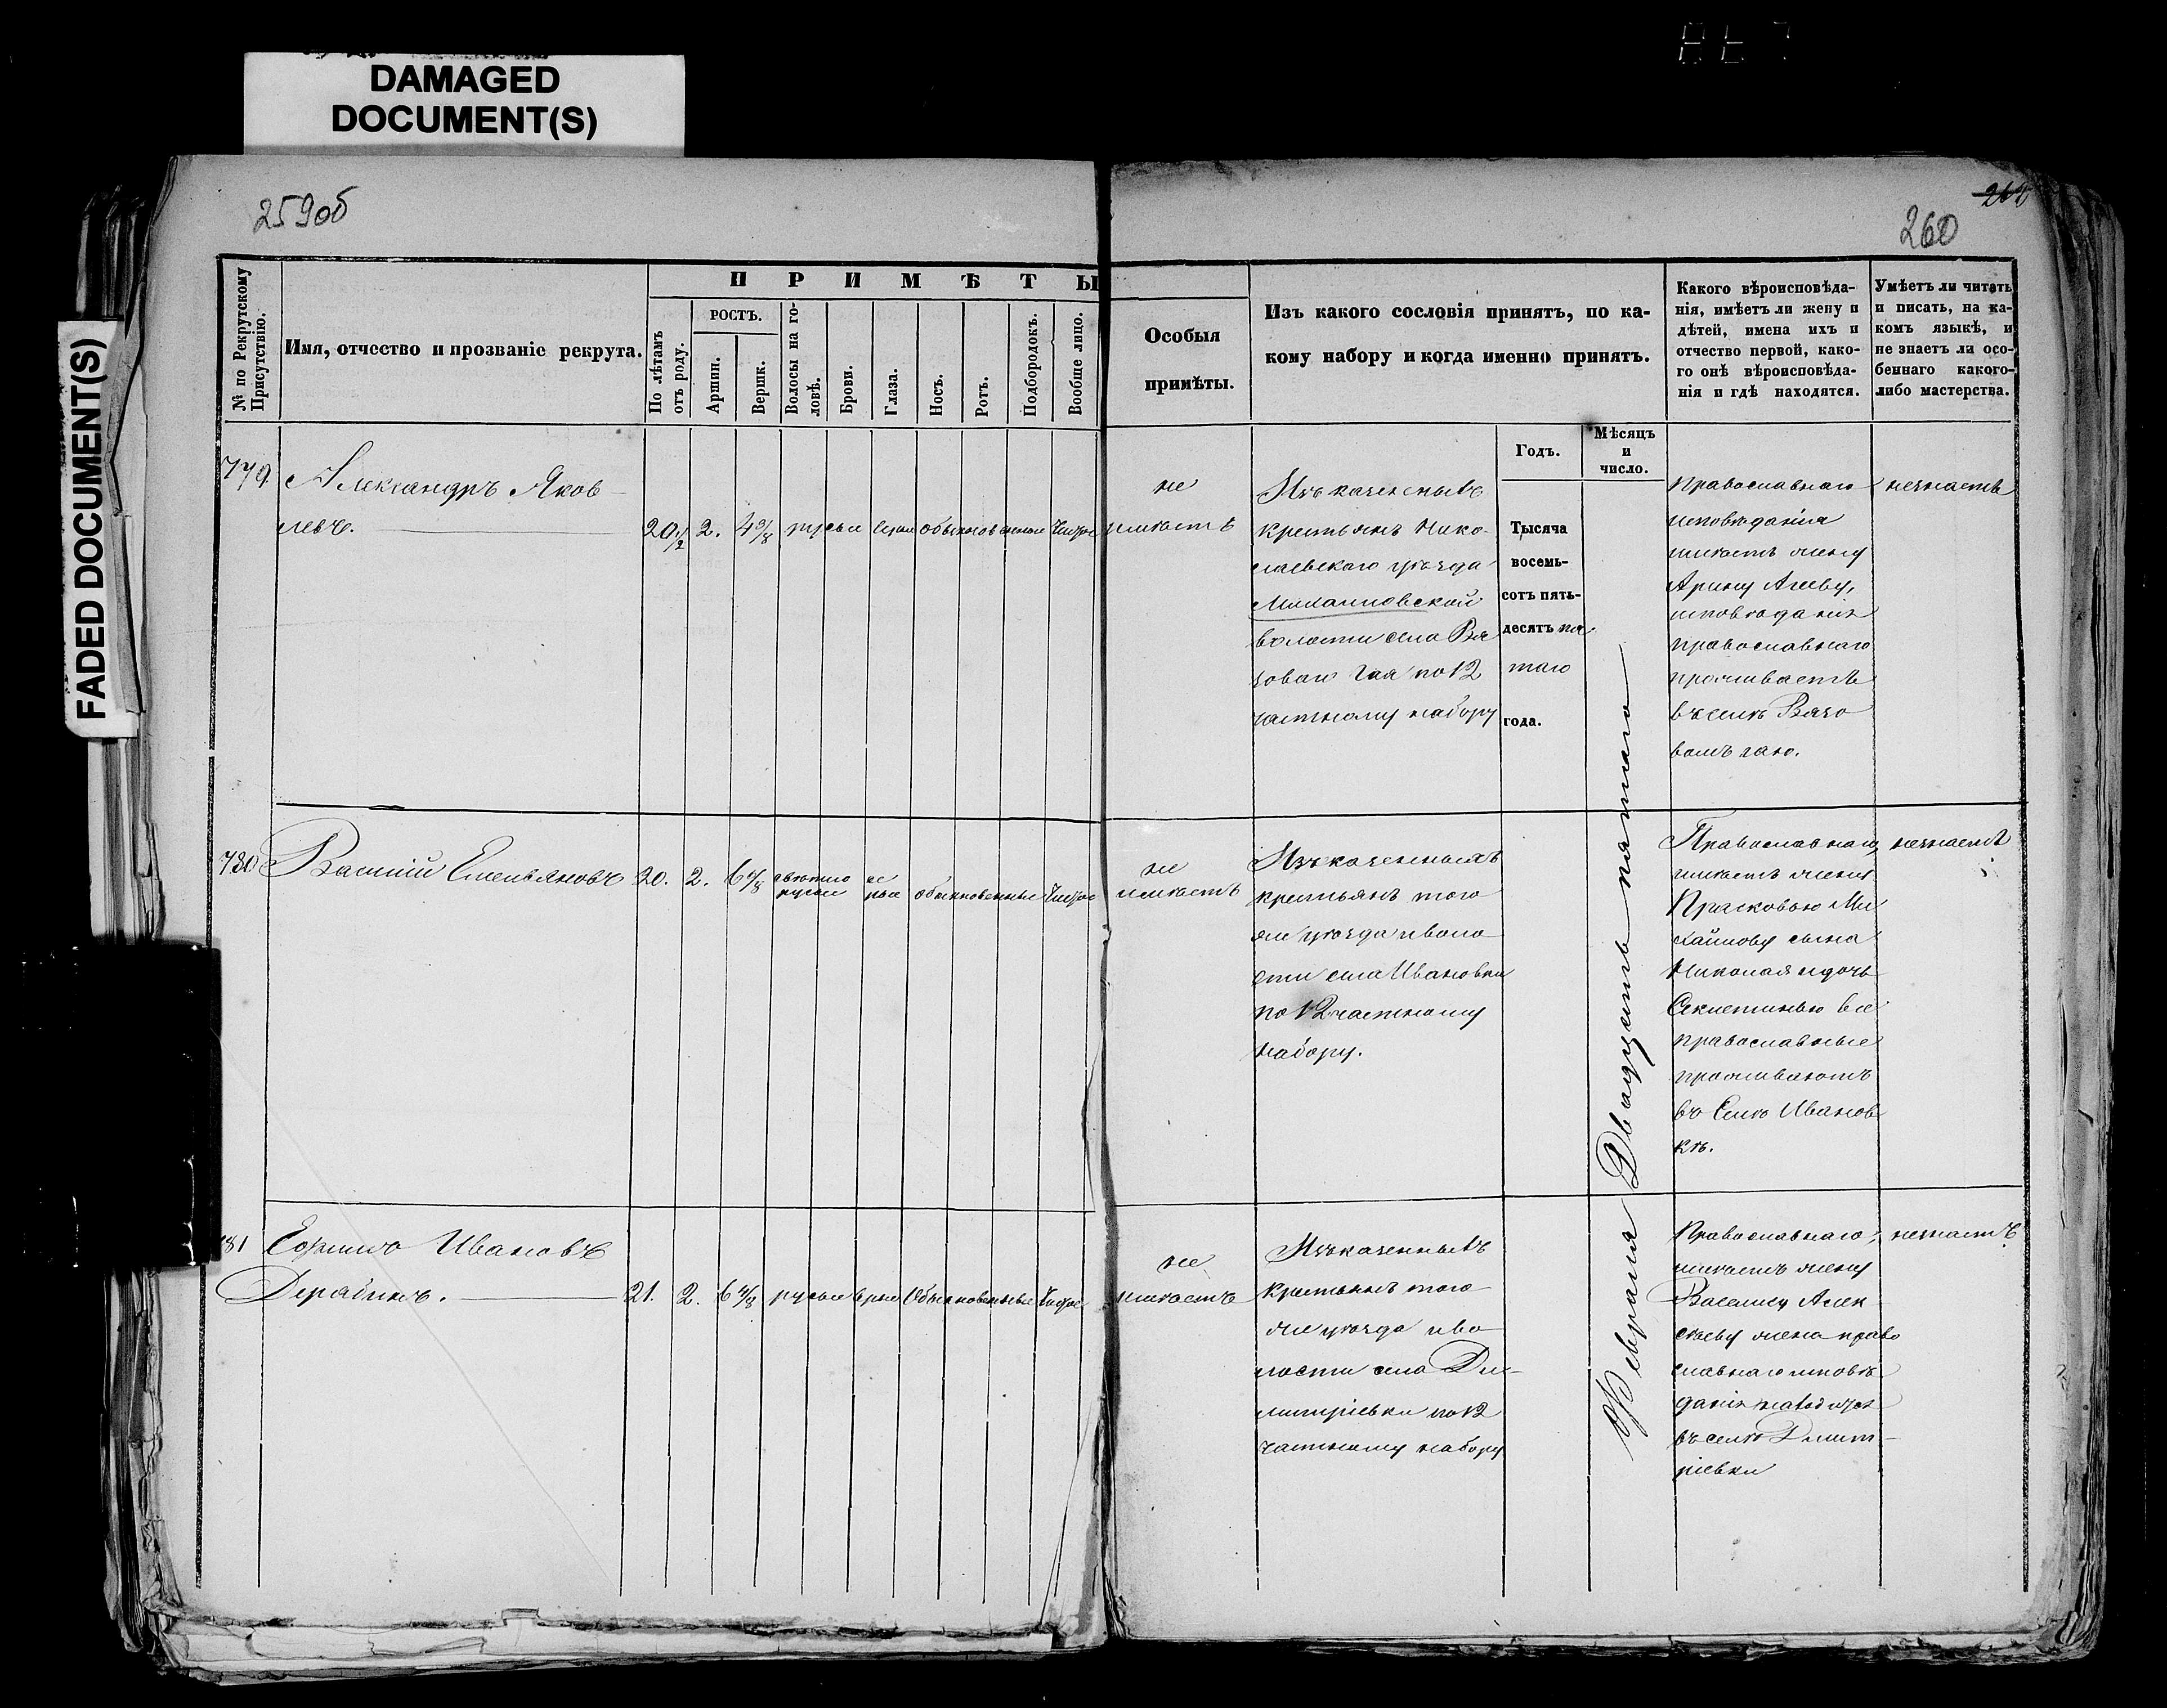 DAMAGED
DOCUMENT(S)
FADED DOCUMENT(S)
259об
260
№ по Рекрутскому
Присутствію.
Имя, отчество и прозваніе рекрута.
ПРИМѢТЫ
По лѣтамъ
отъ роду.
РОСТЪ.
Аршин.
Вершк.
Волосы на го-
ловѣ.
Брови.
Глаза.
Носъ.
Ротъ.
Подбородокъ.
Вообще лицо.
Особыя
примѣты.
Изъ какого сословія принятъ, по ка-
кому набору и когда именно принятъ.
Какого вѣроисповѣда-
нія, имѣетъ ли жену и
дѣтей, имена ихъ и
отчество первой, како-
го онѣ вѣроисповѣда-
нія и гдѣ находятся.
Умѣетъ ли читать
и писать, на ка-
комъ языкѣ, и
не знаетъ ли осо-
беннаго какого-
либо мастерства.
Годъ.
Мѣсяцъ
и
число.
779
Александръ Яков-
левъ.
20 1/2
2.
4 5/8
русые
серые
обыкновенные
чистое
не
имѣетъ
Изъ казенныхъ
крестьянъ Нико-
лаевскаго уѣзда
Михайловской
волости села Вя
зоваго Гая по 12
частному набору
Тысяча
восемь-
сотъ пять-
десятъ пя-
таго
года.
Февраля Двадцать пятаго
Православнаго
исповѣданія
имѣетъ жену
Арину Агееву,
исповѣданія
православнаго
проживаетъ
въ селѣ Вязо
вомъ гаю.
незнаетъ
780
Василій Емельяновъ
20.
2.
6 4/8
свѣтло
русые
се
рые
обыкновенные
чистое
не
имѣетъ
Изъ казенныхъ
крестьянъ того
же уѣзда и воло
сти села Ивановки
по 12 частному
набору.
Православнаго,
имѣетъ жену
Прасковью Ми
хайлову сына
Николая и дочь
Секлетинью все
православные
проживаютъ
въ Селѣ Иванов
кѣ.
незнаетъ
81
Ефимъ Ивановъ
Дерябинъ.
21.
2.
6 4/8
русые
Обыкновенные
чистое
не
имѣетъ
Изъ казенныхъ
крестьянъ того
же уѣзда и во
лости села Дми-
митріевки по 12
частному набору
Православнаго,
имѣетъ жену
Василису Алек
сѣеву жена право
славнаго исповѣ
данія находится
въ селѣ Дмит-
ріевки
незнаетъ